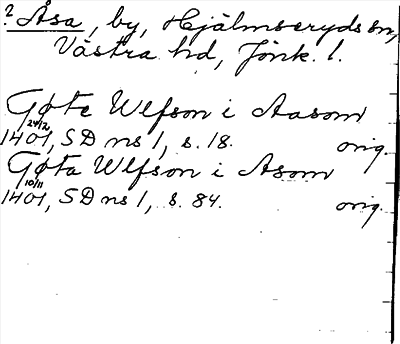 ? Åsa, by, Hjälmseryds sn,
Västra hd, Jönk. l.
Gøte Wlfson i Aasom
1401 24/2, SD ns 1, s. 18. orig.
Gøta Wlfson i Asom
1401 10/11, SD ns 1, s. 84. orig.